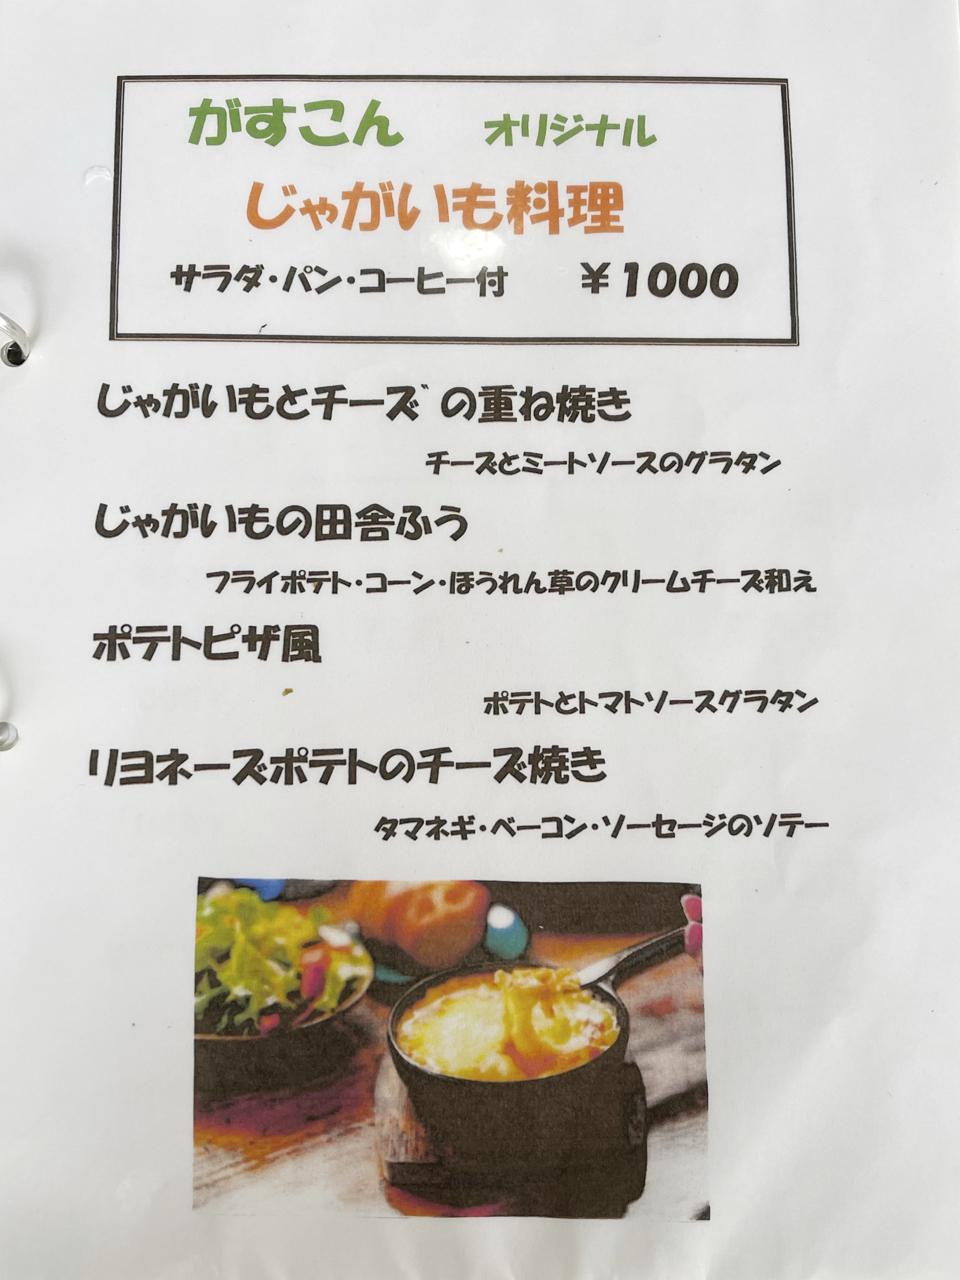 がすこん　オリジナル
じゃがいも料理
サラダ・パン・コーヒー付　￥1000
じゃがいもとチーズ゛の重ね焼き
チーズとミートソースのグラタン
じゃがいもの田舎ふう
フライポテト・コーン・ほうれん草のクリームチーズ和え
ポテトピザ風
ポテトとトマトソースグラタン
リヨネーズポテトのチーズ焼き
タマネギ・ベーコン・ソーセージのソテー